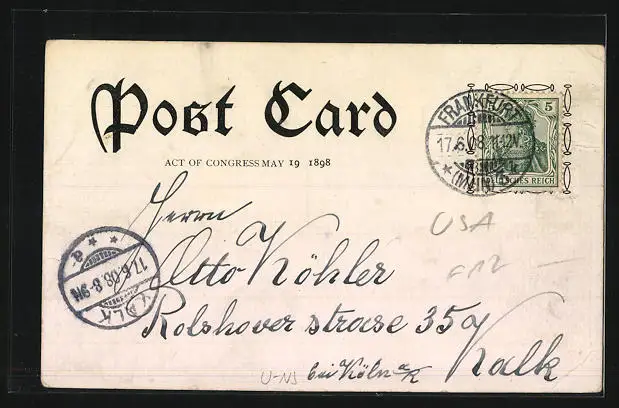 Post Card
ACT OF CONGRESS MAY 19 1898
5
DEUTSCHES REICH
FRANKFURT
17.6.08.11-12V.
* (MAIN)
Herrn
Otto Köhler
Rolshoverstrasse 35a
bei Köln a/R Kalk
KALK
17.6.08.8-9N
* * a
USA
U-NJ